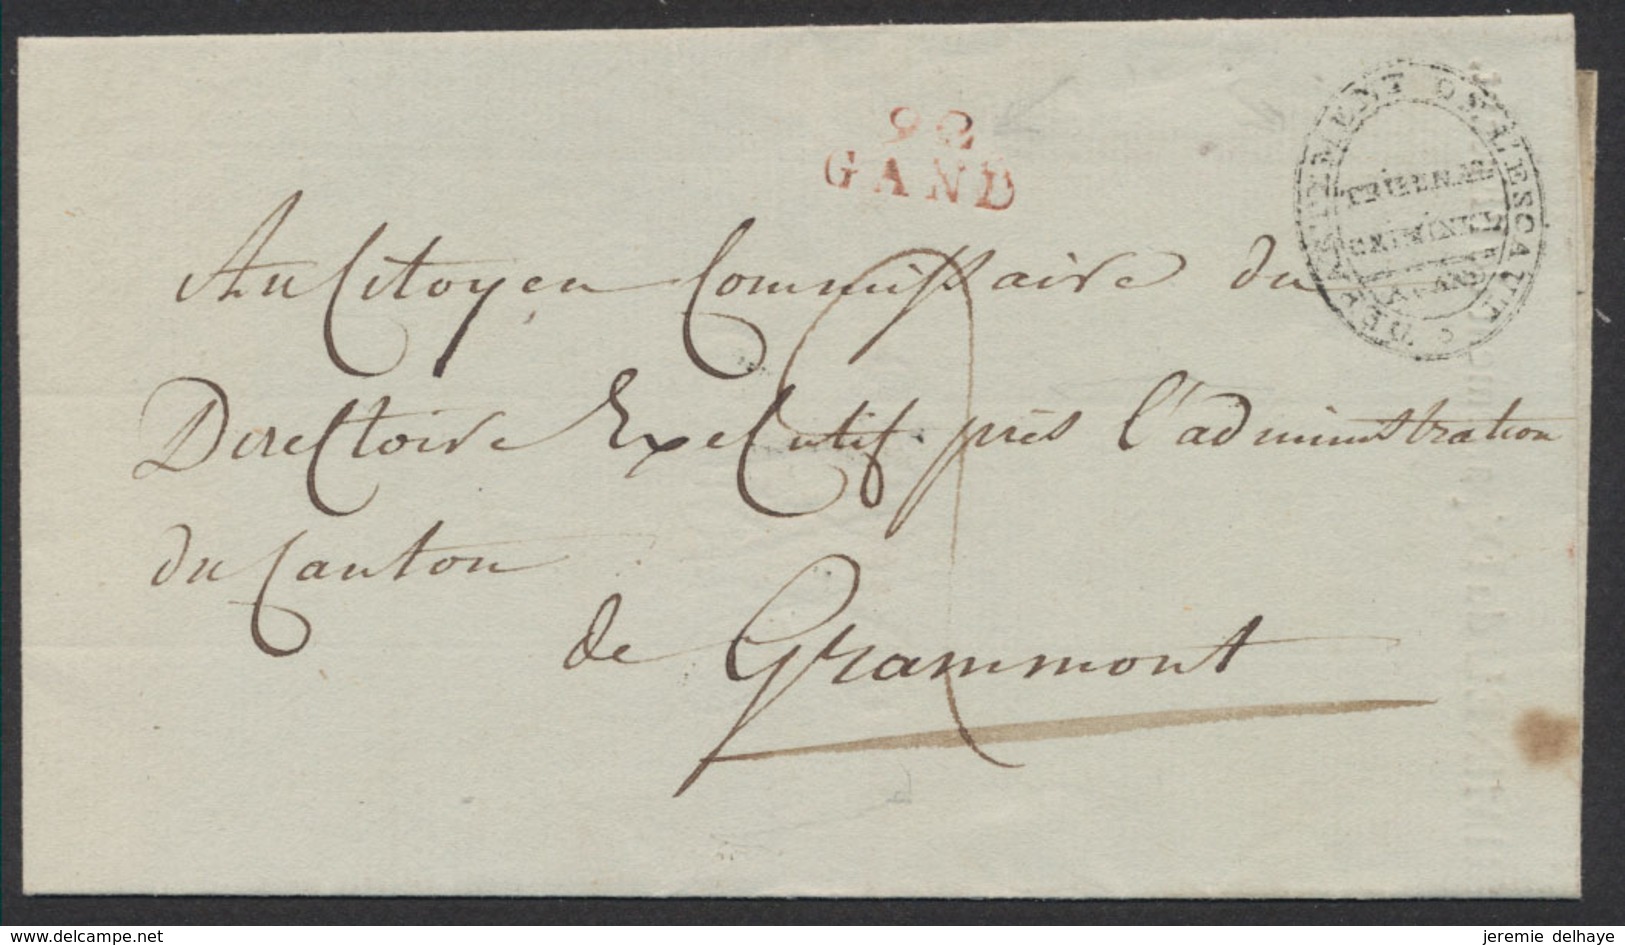 92
GAND
DEPARTEMENT DE L'ESCAUT
TRIBUNAL
CRIMINEL
A GAND
Au Citoyen Commissaire du
Directoire Executif près l'administration
du Canton
de Grammont
www.delcampe.net
jeremie delhaye